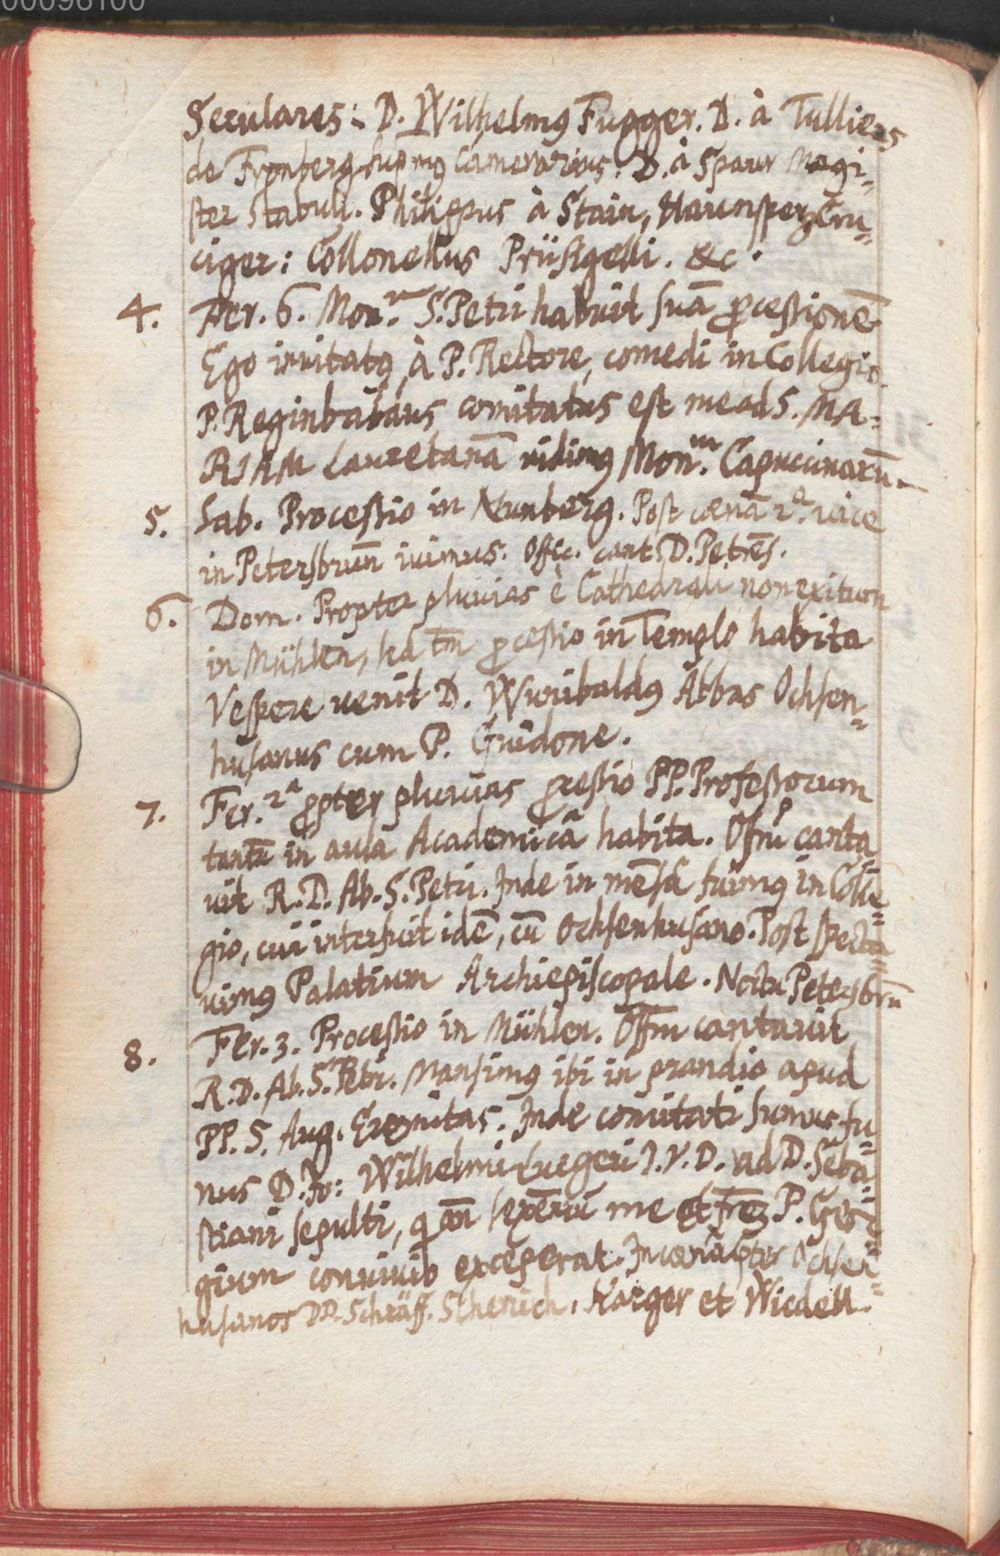 00096100
Seculares: D. Wilhelmꝰ Fugger. D. à Tulliers
de Fronberg supmꝰ Camerarius. D. à Spaur Magi-
ster stabuli. Philippus à Stain, Haunsperg Cru-
ciger: Collonellus Prüsigelli. &c.
4. Fer. 6. Mon.r S. Petri habuit suā ꝓcessionē
Ego invitatꝰ à P. Rectore, comedi in Collegio.
P. Reginbaldus comitatus est me ad S. MA-
RIAM Lauretanā vidimꝰ Mon.m Capucinarū.
5. Sab. Processio in Nunberg. Post cœnā 2.a vice
in Petersbrun̄ ivimus. Offic. cant. D. Petrēs.
6. Dom. Propter pluvias è Cathedrali non exitum
in Mühlen, sed tm̄ ꝓcessio in Templo habita
Vespere venit D. Wunibaldꝰ Abbas Ochsen-
husanus cum P. Guidone.
7. Fer. 2.a ꝓpter pluvias ꝓcessio PP. Professorum
tantū in aula Academicâ habita. Offm̄ canta-
vit R. D. Ab. S. Petri. Inde in mēsâ fuimꝰ in Colle-
gio, cui interfuit idē, cū Ochsenhusano. Post specta-
vimꝰ Palatium Archiepiscopale. Noctu Petersbrū
8. Fer. 3. Processio in Mühlen. Offm cantavit
R. D. Ab. S. Petri. Mansimꝰ ibi in prandio apud
PP. S. Aug. Eremitas. Inde comitati sumus fu-
nus D. Jo: Wilhelmi Luegeri I. V. D. ad D. Seba-
stiani sepulti, me et P.
gium convivio exceperat. Ochsen-
husanos DD. Schräff. Karger et Wiedell.